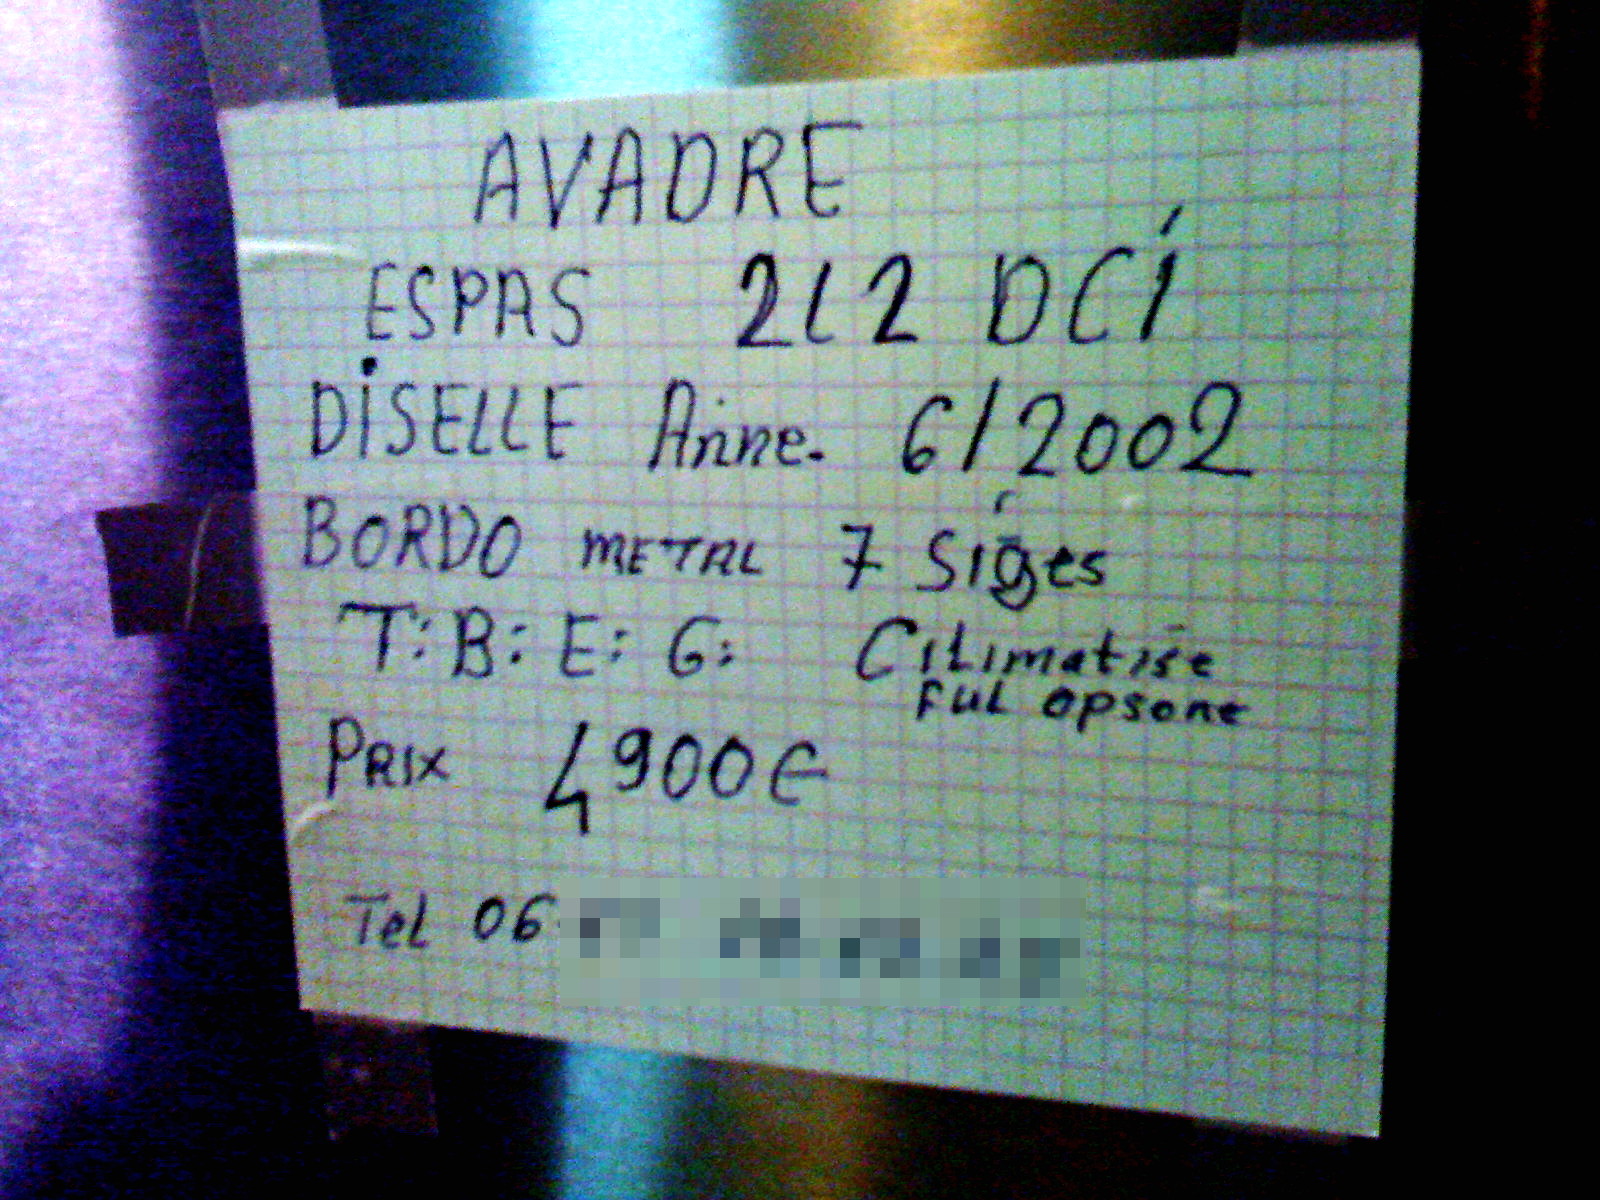 AVADRE
ESPAS 2L2 DCi
DiSELLE Anne. 6/2002
BORDO METAL 7 Siges
T: B: E: G: CiLimatise
FUL opsone
PRIX 4900€
Tel 06